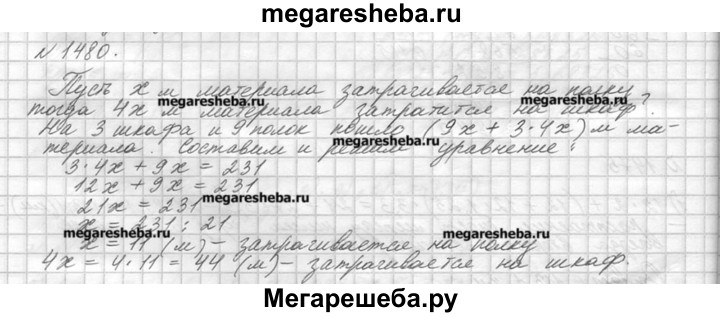 megaresheba.ru
№ 1480.
Пусть x м материала затрагивается на полку
тогда 4x м материала затратится на шкаф.
megaresheba.ru megaresheba.ru
На 3 шкафа и 9 полок пошло (9x + 3·4x) м ма-
териала. Составим и решим уравнение:
3·4x + 9x = 231
12x + 9x = 231
megaresheba.ru
21x = 231
x = 231 : 21
megaresheba.ru megaresheba.ru
x = 11 (м) – затрагивается на полку
4x = 4·11 = 44 (м) – затрагивается на шкаф.
Мегарешеба.ру